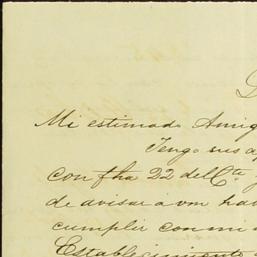 Mi estimado Amig
Tengo sus a
con fha 22 del Cte
de avisar a vm hav
cumplir con mi
Establecimiento